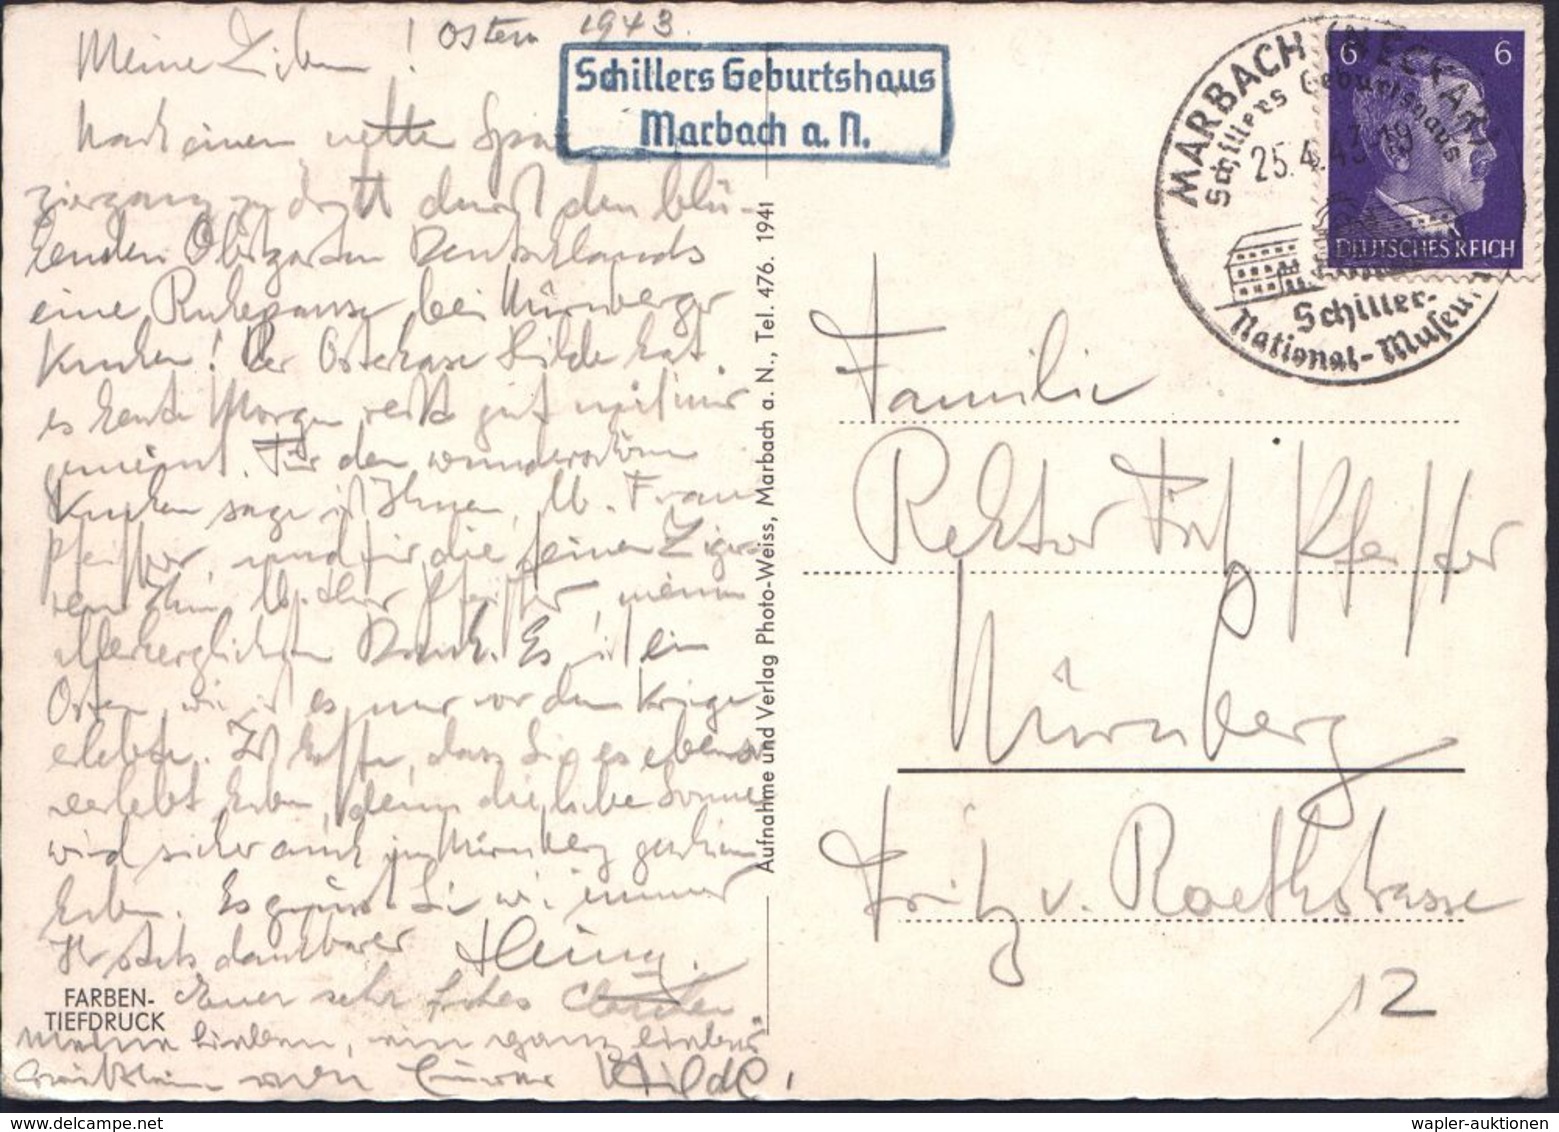 Ostern 1943.
Meine Lieben!
Nach einem netten Spa
ziergang zu dritt durch den blü-
henden Obstgarten Deutschlands
eine Ruhepause bei Nürnberger
Kuchen! Der Osterhase Hilde hat
es heute Morgen recht gut mit mir
gemeint. Für den wunderschönen
Kuchen sage ich Ihnen, lb. Frau
Pfeiffer, und für die feinen Zigar
ren Ihnen, lb. Herr Pfeiffer, meinen
allerherzlichsten Dank. Es ist ein
Ostern, wie ich es nur vor dem Kriege
erlebte. Ich hoffe, dass Sie es ebenso
verlebt haben, denn die liebe Sonne
wird sicher auch in Nürnberg geschienen
haben. Es grüsst Sie wie immer
Ihr stets dankbarer
Euer sehr frohes
Meine Lieben, ein ganz liebes
von Eurer Hilde!
FARBEN-
TIEFDRUCK
Schillers Geburtshaus
Marbach a. N.
Aufnahme und Verlag Photo-Weiss, Marbach a. N., Tel. 476. 1941
MARBACH (NECKAR)
Schillers Geburtshaus
25.4.43.-19
Schiller-
National-Museum
6 6
DEUTSCHES REICH
Familie
Rektor Fritz Pfeiffer
Nürnberg
Fritz v. Roethstrasse
12
wapler-auktionen